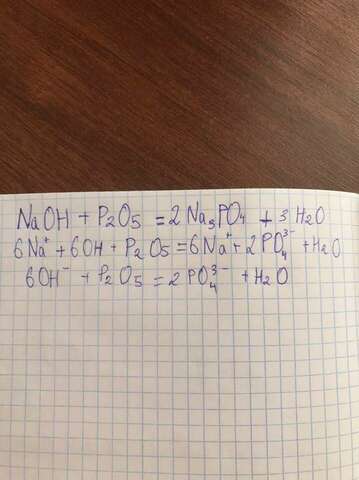 NaOH + P2O5 = 2 Na3PO4 + 3 H2O
6Na⁺ + 6OH + P2O5 = 6Na⁺ + 2PO4³⁻ + H2O
6OH⁻ + P2O5 = 2PO4³⁻ + H2O